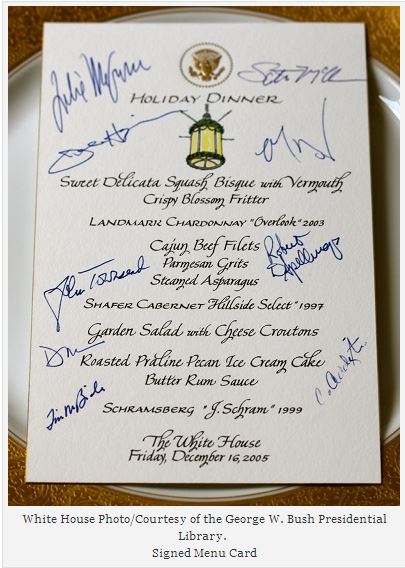 Holiday Dinner
Sweet Delicata Squash Bisque with Vermouth
Crispy Blossom Fritter
Landmark Chardonnay "Overlook" 2003
Cajun Beef Filets
Parmesan Grits
Steamed Asparagus
John Townsend
Shafer Cabernet "Hillside Select" 1997
Garden Salad with Cheese Croutons
Roasted Praline Pecan Ice Cream Cake
Butter Rum Sauce
Schramsberg "J. Schram" 1999
The White House
Friday, December 16, 2005
White House Photo/Courtesy of the George W. Bush Presidential
Library.
Signed Menu Card